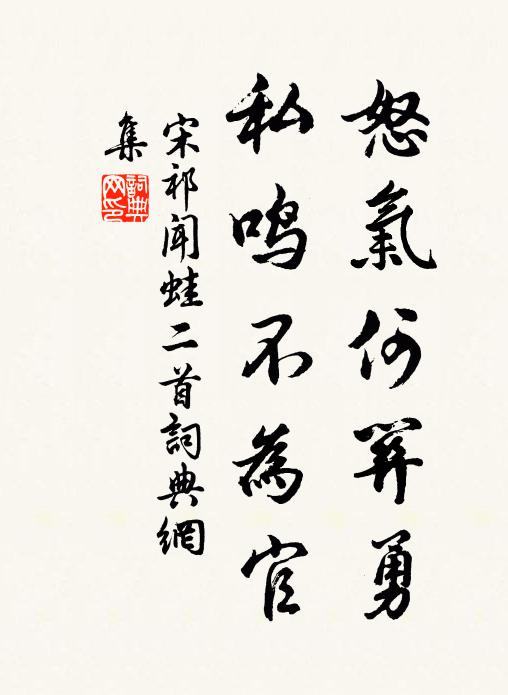 怒氣何關勇
私鳴不為官
宋祁聞蛙二首詞典網
集
詞典
网印